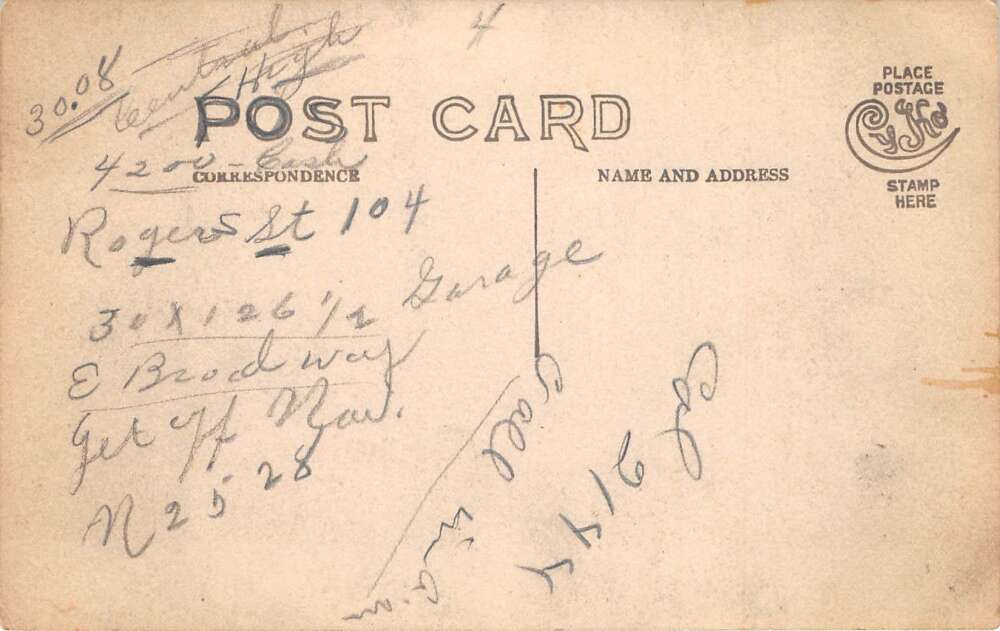 4
30.08
Central
High
POST CARD
PLACE
POSTAGE
STAMP
HERE
4200 - Cash
CORRESPONDENCE
NAME AND ADDRESS
Rogers St 104
30 X 126 1/2 Garage
E Brodway
Get off
N 2528
Call in a.m
Col